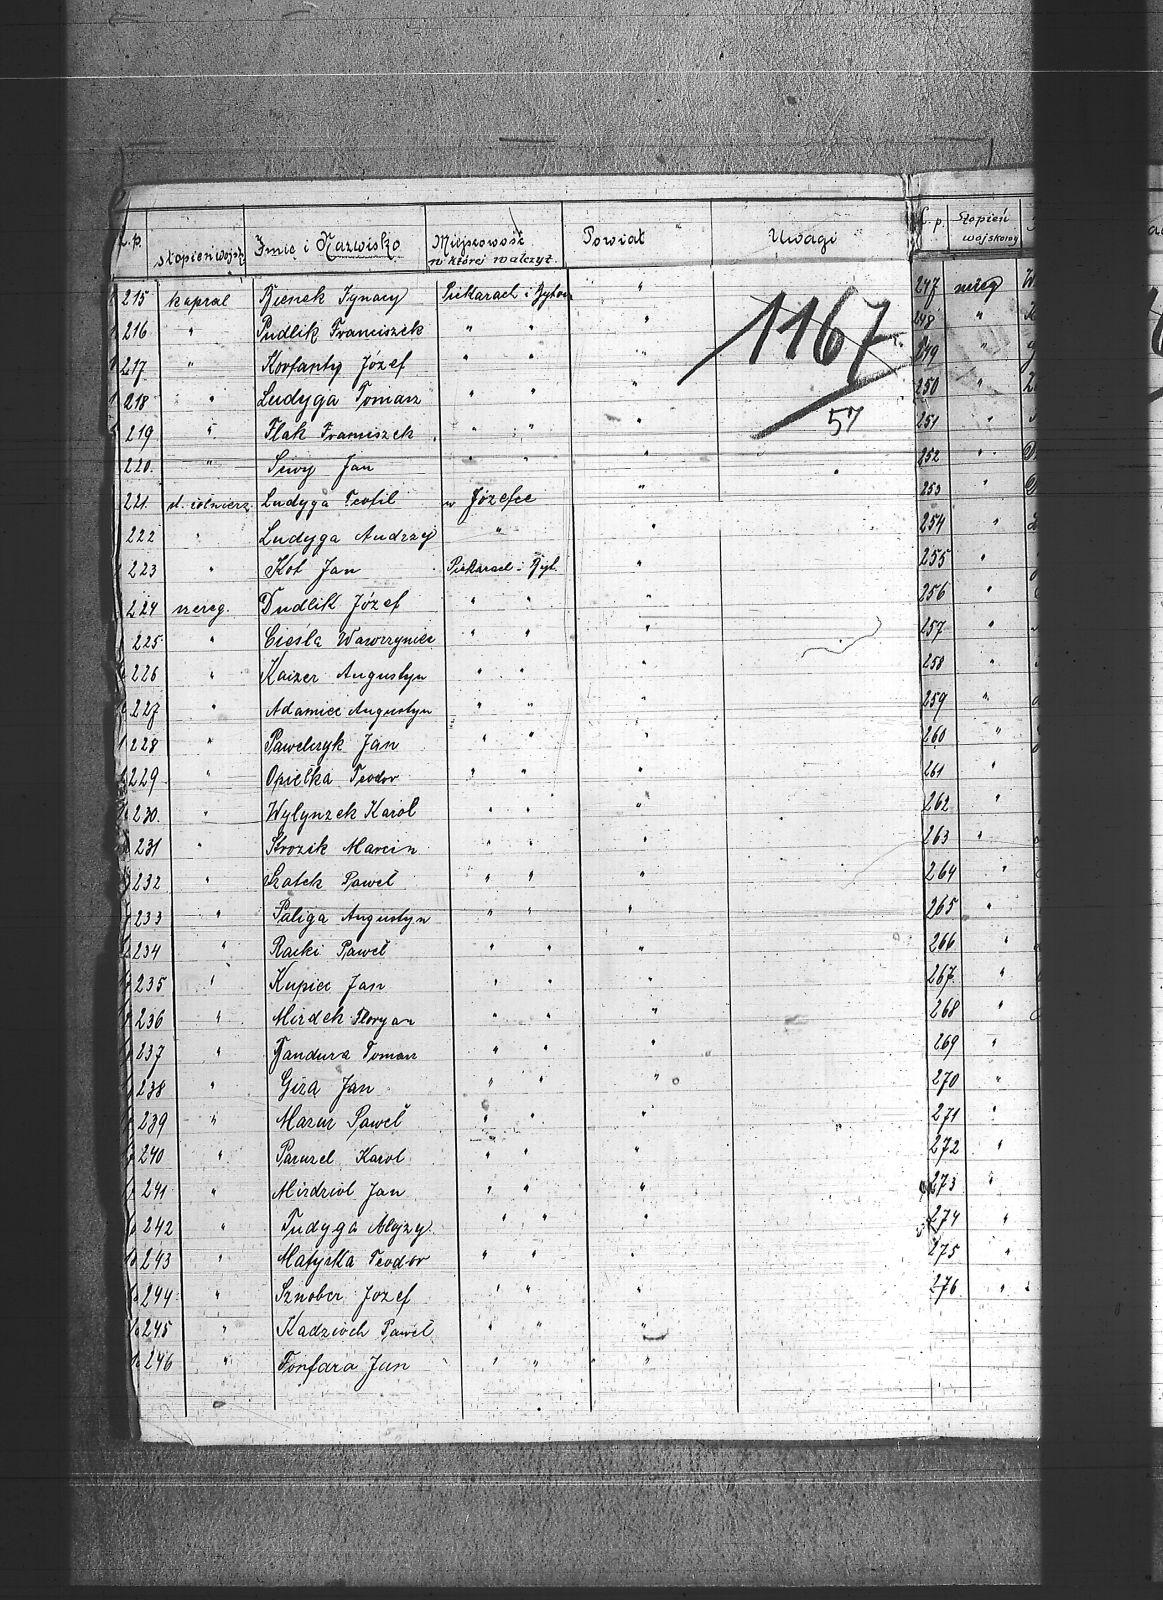 L.p. stopień wojsk. Imię i Nazwisko Miejscowość w której walczył. Powiat Uwagi
215 kapral Ignacy Piekarach i "
216 " Pudlik Franciszek " " "
217 " Korfanty Józef " " "
218 " Ludyga Tomasz " " "
219 " Flak Franciszek " " "
220. " Jan " " "
221. st. żołnierz Ludyga Teofil w Józefce "
222 " Ludyga Andrzej " "
223 " Kot Jan Piekarach i "
224 szereg. Dudlik Józef " " "
225 " Cieśla Wawrzyniec " " "
226 " Kaizer Augustyn " " "
227 " Adamiec Augustyn " " "
228 " Pawelczyk Jan " " "
229 " Opielka Teodor " " "
230. " Wylynzek Karol " " "
231 " Krozik Marcin " " "
232 " Szatek Paweł " " "
233 " Paliga Augustyn " " "
234 " Racki Paweł " " "
235 " Kupiec Jan " " "
236 " Mirdek Floryan " " "
237 " Tomasz " " "
238 " Giza Jan " " "
239 " Mazur Paweł " " "
240 " Paruzel Karol " " "
241 " Mirdziol Jan " " "
242 " Ludyga Alojzy " " "
243 " Matyska Teodor " " "
244 " Sznober Jozef " " "
245 " Kadzioch Paweł " " "
246 " Fonfara Jan " " "
1167
57
L.p. Stopień wojskowy
247 szereg
248 "
249 "
250 "
251 "
252 "
253 "
254 "
255 "
256 "
257 "
258 "
259 "
260 "
261 "
262 "
263 "
264 "
265 "
266 "
267. "
268 "
269 "
270 "
271 "
272 "
273 "
274 "
275 "
276 "